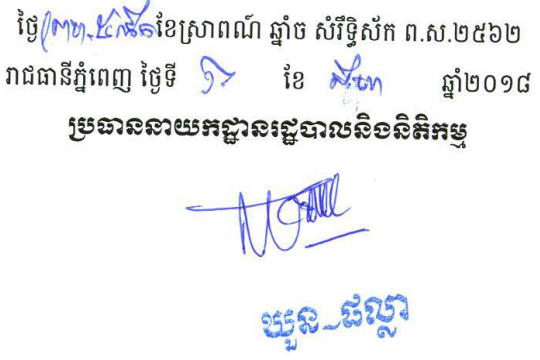 ថ្ងៃ ខែស្រាពណ៍ ឆ្នាំច សំរឹទ្ធិស័ក ព.ស.២៥៦២
រាជធានីភ្នំពេញ ថ្ងៃទី ខែ សីហា ឆ្នាំ២០១៨
ប្រធាននាយកដ្ឋានរដ្ឋបាលនិងនិតិកម្ម
ឃួន-ផល្លា